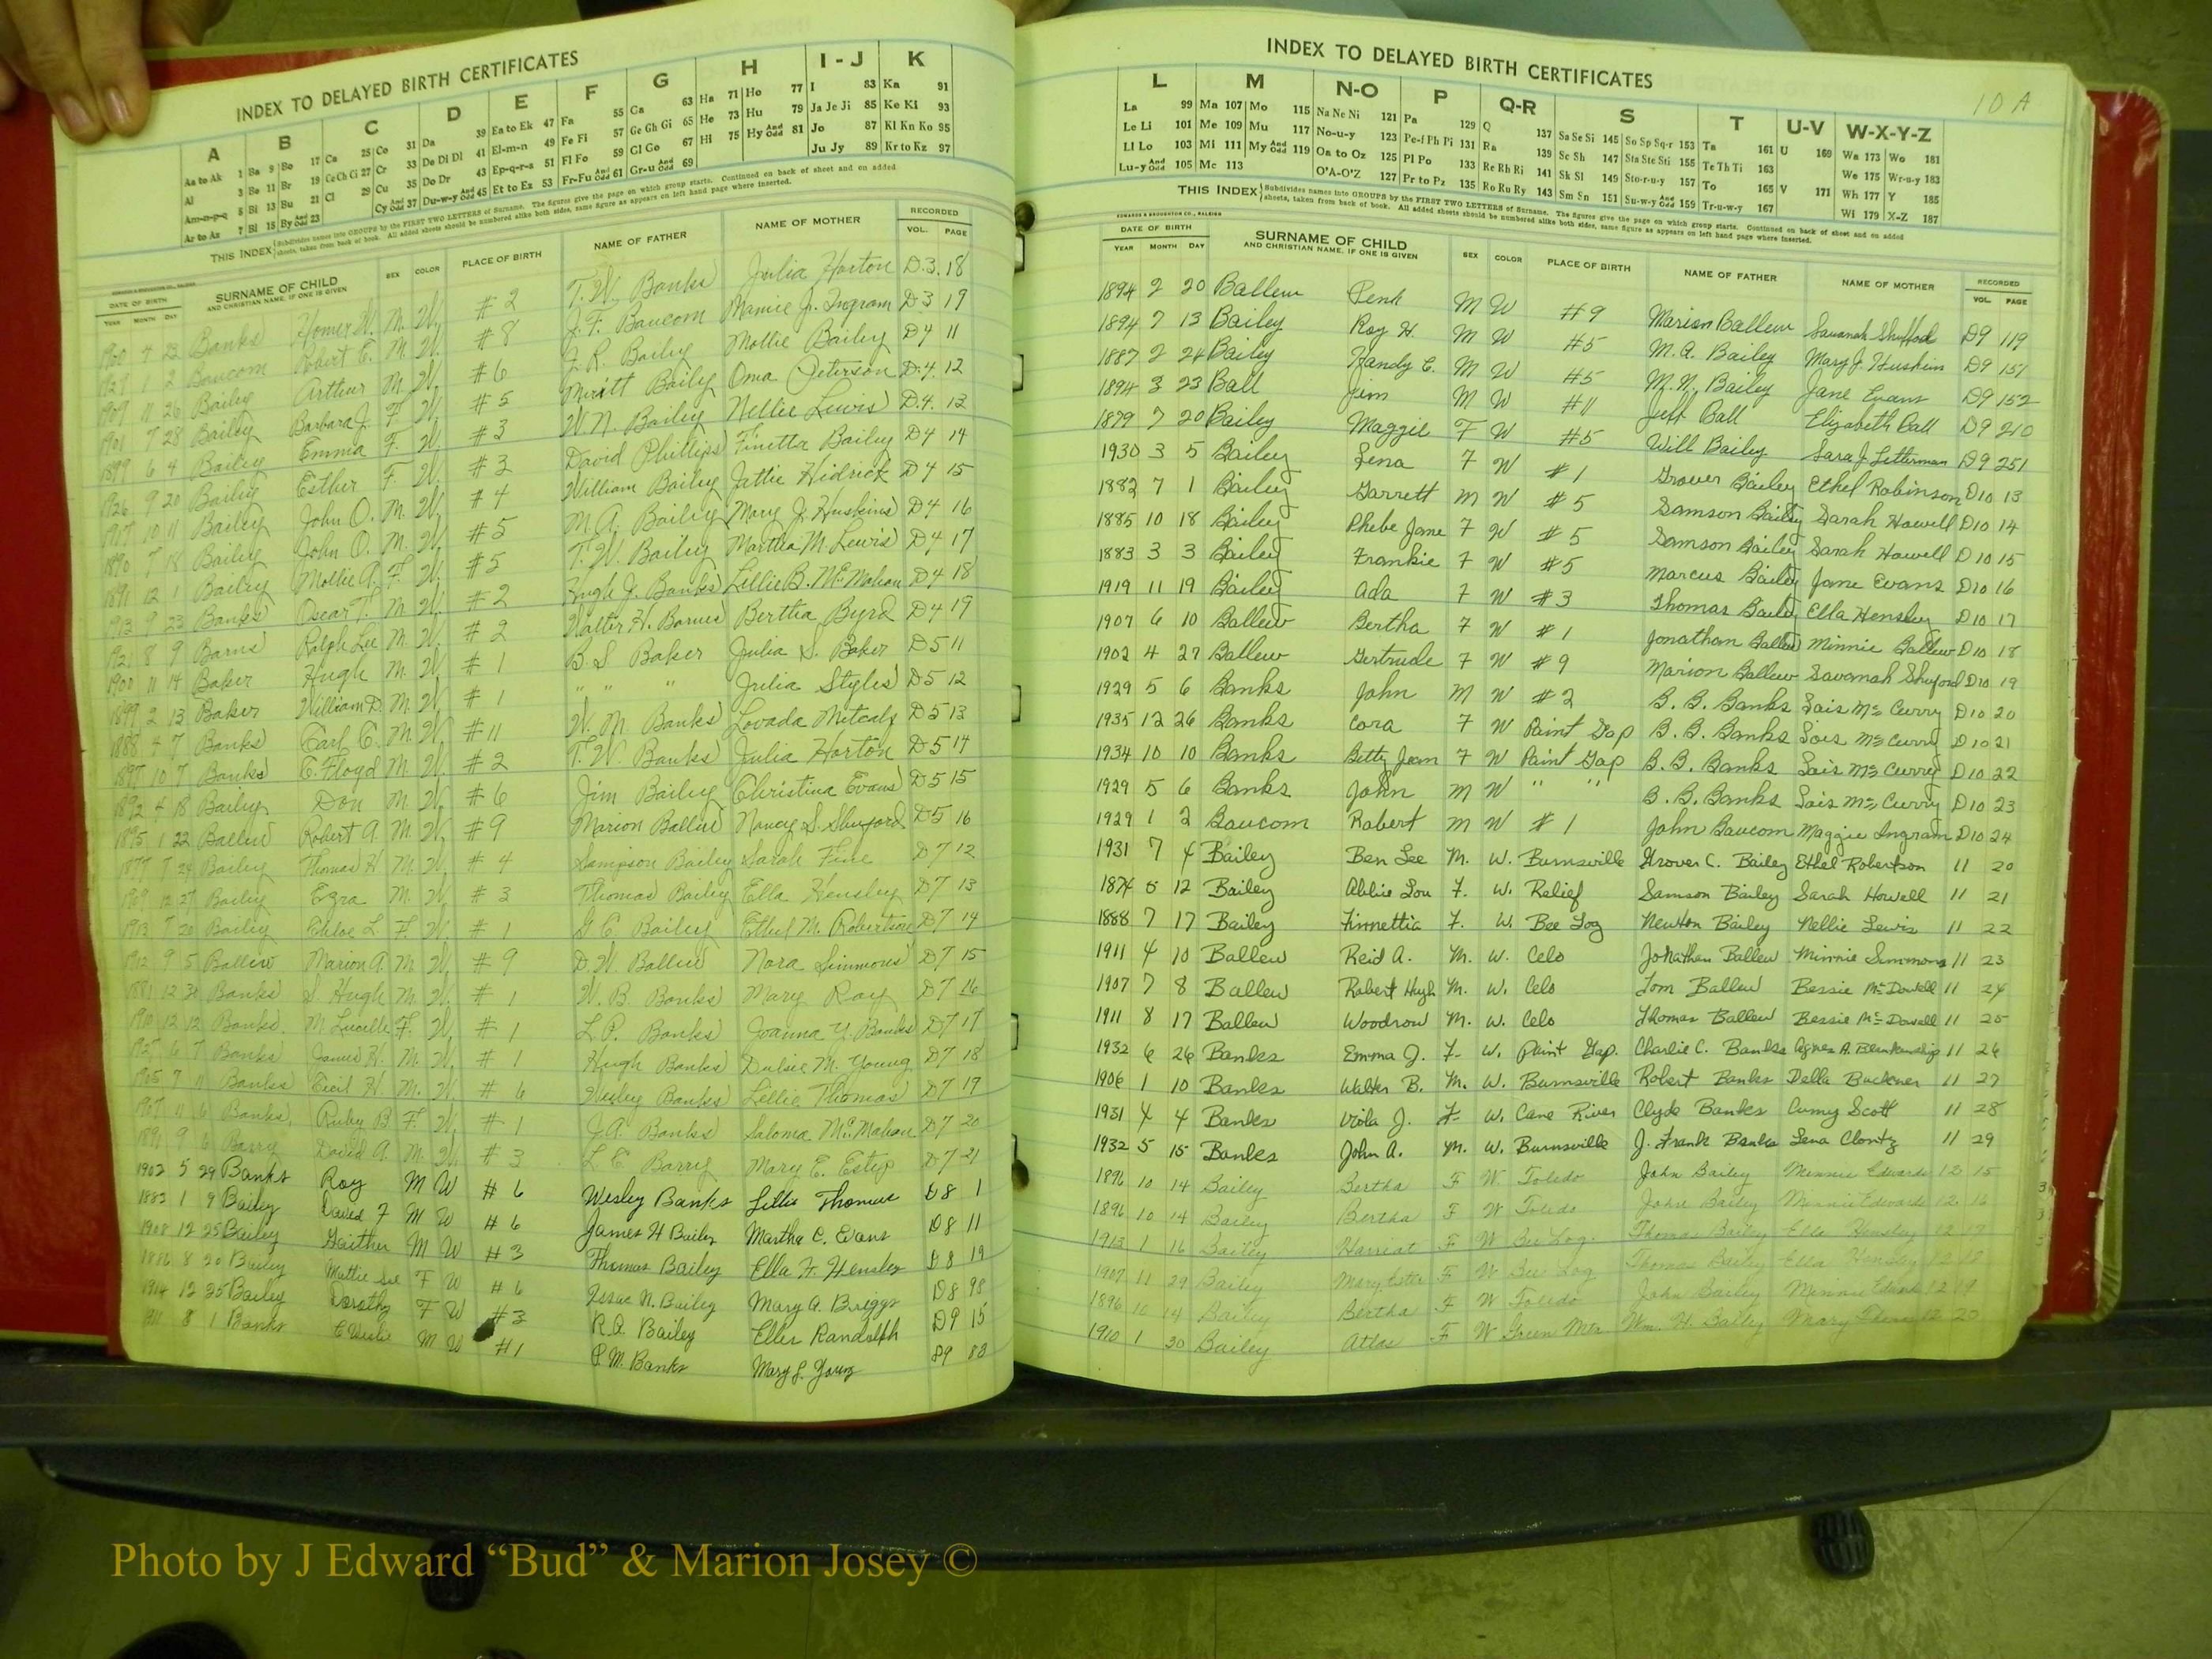 INDEX TO DELAYED BIRTH CERTIFICATES
A B C D E F G H I - J K
Aa to Ak 1 Ba 9 Bo 17 Ca 25 Co 31 Da 39 Ea to Ek 47 Fa 55 Ga 63 Ha 71 Ho 77 I 83 Ka 91
Al 3 Be 11 Br 19 Ce Ch Ci 27 Cr 33 De Di Dl 41 El-m-n 49 Fe Fi 57 Ge Gh Gi 65 He 73 Hu 79 Ja Je Ji 85 Ke Ki 93
Am-n-p-q 5 Bi 13 Bu 21 Cl 29 Cu 35 Do Dr 43 Ep-q-r-s 51 Fl Fo 59 Gl Go 67 Hi 75 Hy And Odd 81 Jo 87 Kl Kn Ko 95
Ar to Az 7 Bl 15 By And Odd 23 Cy And Odd 37 Du-w-y And Odd 45 Et to Ez 53 Fr-Fu And Odd 61 Gr-u And Odd 69 Ju Jy 89 Kr to Kz 97
THIS INDEX Subdivides names into GROUPS by the FIRST TWO LETTERS of Surname. The figures give the page on which group starts. Continued on back of sheet and on added
sheets, taken from back of book. All added sheets should be numbered alike both sides, same figure as appears on left hand page where inserted.
DATE OF BIRTH SURNAME OF CHILD SEX COLOR PLACE OF BIRTH NAME OF FATHER NAME OF MOTHER RECORDED
YEAR MONTH DAY AND CHRISTIAN NAME, IF ONE IS GIVEN VOL. PAGE
1900 4 23 Banks Homer W. M. W. #2 T. W. Banks Julia Horton D.3. 18
1929 1 2 Baucom Robert E. M. W. #8 J. F. Baucom Mamie J. Ingram D3 19
1909 11 26 Bailey Arthur M. W. #6 J. R. Baily Mollie Bailey D4 11
1901 7 28 Bailey Barbara J. F. W. #5 Meritt Baily Oma Peterson D.4. 12
1899 6 4 Bailey Emma F. W. #3 W. N. Bailey Nellie Lewis D.4. 13
1926 9 20 Bailey Esther F. W. #3 David Phillips Finetta Bailey D4 14
1917 10 11 Bailey John O. M. W. #4 William Bailey Jattie Hidrick D4 15
1890 7 18 Bailey John O. M. W. #5 M. A. Bailey Mary J. Huskins D4 16
1891 12 1 Bailey Mollie A. F. W. #5 T. W. Bailey Martha M. Lewis D4 17
1913 9 23 Banks Oscar T. M. W. #2 Hugh J. Banks Lillie B. McMahan D4 18
1921 8 9 Barns Ralph Lee M. W. #2 Walter H. Barnes Bertha Byrd D4 19
1900 11 14 Baker Hugh M. W. #1 B. S. Baker Julia S. Baker D5 11
1899 2 13 Baker William D. M. W. #1 " " " Julia Styles D5 12
1888 4 7 Banks Carl C. M. W. #11 W. M. Banks Lovada Metcalf D5 13
1897 10 7 Banks C. Floyd M. W. #2 T. W. Banks Julia Horton D5 14
1892 4 18 Bailey Don M. W. #6 Jim Bailey Christina Evans D5 15
1895 1 22 Ballew Robert A. M. W. #9 Marion Ballew Nancy S. Shuford D5 16
1877 7 24 Bailey Thomas H M. W. #4 Sampson Bailey Sarah Fine D7 12
1909 12 27 Bailey Ezra M. W. #3 Thomas Bailey Ella Hensley D7 13
1913 7 20 Bailey Chloe L. F. W. #1 G C. Bailey Ethel M. Robertson D7 14
1912 9 5 Ballew Marion A. M. W. #9 D. W. Ballew Nora Simmons D7 15
1881 12 30 Banks S. Hugh M. W. #1 W. B. Banks Mary Ray D7 16
1910 12 12 Banks. M. Lucille F. W. #1 L. P. Banks Joanna Y. Banks D7 17
1925 6 7 Banks James H. M. W. #1 Hugh Banks Dulsie M. Young D7 18
1905 7 11 Banks Cecil H. M. W. #6 Wesley Banks Lillie Thomas D7 19
1907 11 6 Banks, Ruby B F. W. #1 J. A. Banks Saloma McMahan D7 20
1891 9 6 Barry David A. M. W. #3 L. E Barry Mary E. Estep D7 21
1902 5 29 Banks Roy M W #6 Wesley Banks Lillis Thomas D8 1
1883 1 9 Bailey David F M W #6 James H Bailey Martha C. Evans D8 11
1908 12 25 Bailey Gaither M W #3 Thomas Bailey Ella H. Hensley D8 19
1886 8 20 Bailey Mattie Sue F W #6 Isaac N. Bailey Mary A. Briggs D8 98
1914 12 25 Bailey Dorothy F W #3 R. A. Bailey Eller Randolph D9 15
1911 8 1 Banks C Weslie M W #1 P. M. Banks Mary L. Young D9 83
10 A
INDEX TO DELAYED BIRTH CERTIFICATES
L M N-O P Q-R S T U-V W-X-Y-Z
La 99 Ma 107 Mo 115 Na Ne Ni 121 Pa 129 Q 137 Sa Se Si 145 So Sp Sq-r 153 Ta 161 U 169 Wa 173 Wo 181
Le Li 101 Me 109 Mu 117 No-u-y 123 Pe-f Ph Pi 131 Ra 139 Sc Sh 147 Sta Ste Sti 155 Te Th Ti 163 We 175 Wr-u-y 183
Ll Lo 103 Mi 111 My And Odd 119 Oa to Oz 125 Pl Po 133 Re Rh Ri 141 Sk Sl 149 Sto-r-u-y 157 To 165 V 171 Wh 177 Y 185
Lu-y And Odd 105 Mc 113 O'A-O'Z 127 Pr to Pz 135 Ro Ru Ry 143 Sm Sn 151 Su-w-y And Odd 159 Tr-u-w-y 167 Wi 179 X-Z 187
THIS INDEX Subdivides names into GROUPS by the FIRST TWO LETTERS of Surname. The figures give the page on which group starts. Continued on back of sheet and on added
sheets, taken from back of book. All added sheets should be numbered alike both sides, same figure as appears on left hand page where inserted.
EDWARDS & BROUGHTON CO., RALEIGH
DATE OF BIRTH SURNAME OF CHILD SEX COLOR PLACE OF BIRTH NAME OF FATHER NAME OF MOTHER RECORDED
YEAR MONTH DAY AND CHRISTIAN NAME, IF ONE IS GIVEN VOL. PAGE
1894 2 20 Ballew Penk M W #9 Marion Ballew Savanah Shufford D9 119
1894 7 13 Bailey Roy H. M W #5 M. A. Bailey Mary J. Huskins D9 151
1887 2 24 Bailey Randy C. M W #5 M. N. Bailey Jane Evans D9 152
1894 3 23 Ball Jim M W #11 Jeff Ball Elizabeth Ball D9 210
1879 7 20 Bailey Maggie F W #5 Will Bailey Sara J. Letterman D9 251
1930 3 5 Bailey Lena F W #1 Grover Bailey Ethel Robinson D10 13
1882 7 1 Bailey Garrett M W #5 Samson Bailey Sarah Howell D10 14
1885 10 18 Bailey Phebe Jane F W #5 Samson Bailey Sarah Howell D10 15
1883 3 3 Bailey Frankie F W #5 Marcus Bailey Jane Evans D10 16
1919 11 19 Bailey Ada F W #3 Thomas Bailey Ella Hensley D10 17
1907 6 10 Ballew Bertha F W #1 Jonathan Ballew Minnie Ballew D10 18
1902 4 27 Ballew Gertrude F W #9 Marion Ballew Savannah Shuford D10 19
1929 5 6 Banks John M W #2 B. B. Banks Lois McCurry D10 20
1935 12 26 Banks Cora F W Paint Gap B. B. Banks Lois McCurry D10 21
1934 10 10 Banks Betty Jean F W Paint Gap B. B. Banks Lois McCurry D10 22
1929 5 6 Banks John M W " " B. B. Banks Lois McCurry D10 23
1929 1 2 Baucom Robert M W #1 John Baucom Maggie Ingram D10 24
1931 7 4 Bailey Ben Lee M. W. Burnsville Grover C. Bailey Ethel Robertson 11 20
1874 5 12 Bailey Abbie Lou F. W. Relief Samson Bailey Sarah Howell 11 21
1888 7 17 Bailey Finnettia F. W. Bee Log Newton Bailey Nellie Lewis 11 22
1911 4 10 Ballew Reid A. M. W. Celo Jonathan Ballew Minnie Simmons 11 23
1907 7 8 Ballew Robert Hugh M. W. Celo Tom Ballew Bessie McDowell 11 24
1911 8 17 Ballew Woodrow M. W. Celo Thomas Ballew Bessie McDowell 11 25
1932 6 26 Banks Emma J. F. W. Paint Gap. Charlie C. Banks Agnes A. Blankenship 11 26
1906 1 10 Banks Walter B. M. W. Burnsville Robert Banks Della Buckner 11 27
1931 4 4 Banks Viola J. F. W. Cane River Clyde Banks Cumy Scott 11 28
1932 5 15 Banks John A. M. W. Burnsville J. Frank Banks Lena Clontz 11 29
1896 10 14 Bailey Bertha F W. Toledo John Bailey Minnie Edwards 12 15
1896 10 14 Bailey Bertha F W Toledo John Bailey Minnie Edwards 12 16
1913 1 16 Bailey Harriet F W Bee Log. Thomas Bailey Ella Hensley 12 17
1907 11 29 Bailey Mary Etta F W Bee Log Thomas Bailey Ella Hensley 12 18
1896 10 14 Bailey Bertha F W Toledo John Bailey Minnie Edwards 12 19
1910 1 30 Bailey Atlas F W Green Mtn Wm. H. Bailey Mary 12 20
Photo by J Edward “Bud” & Marion Josey ©